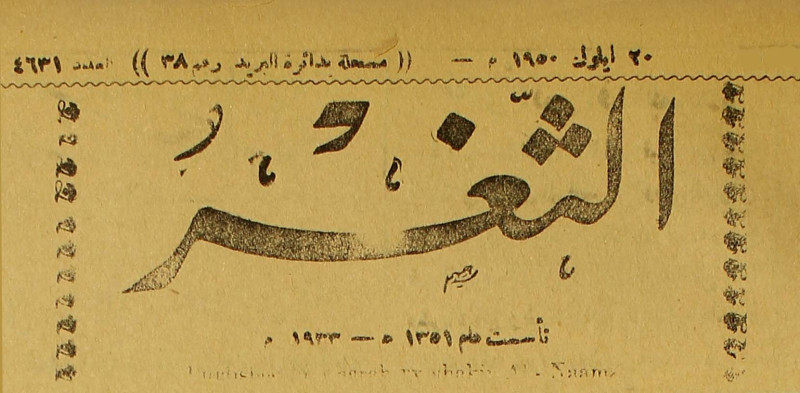 ٢٠ ايلول ١٩٥٠ م — (( مسجلة بدائرة البريد رقم ٣٨ )) العدد ٤٦٣١
الثّغر
تأسست عام ١٣٥١ ه — ١٩٣٣ م